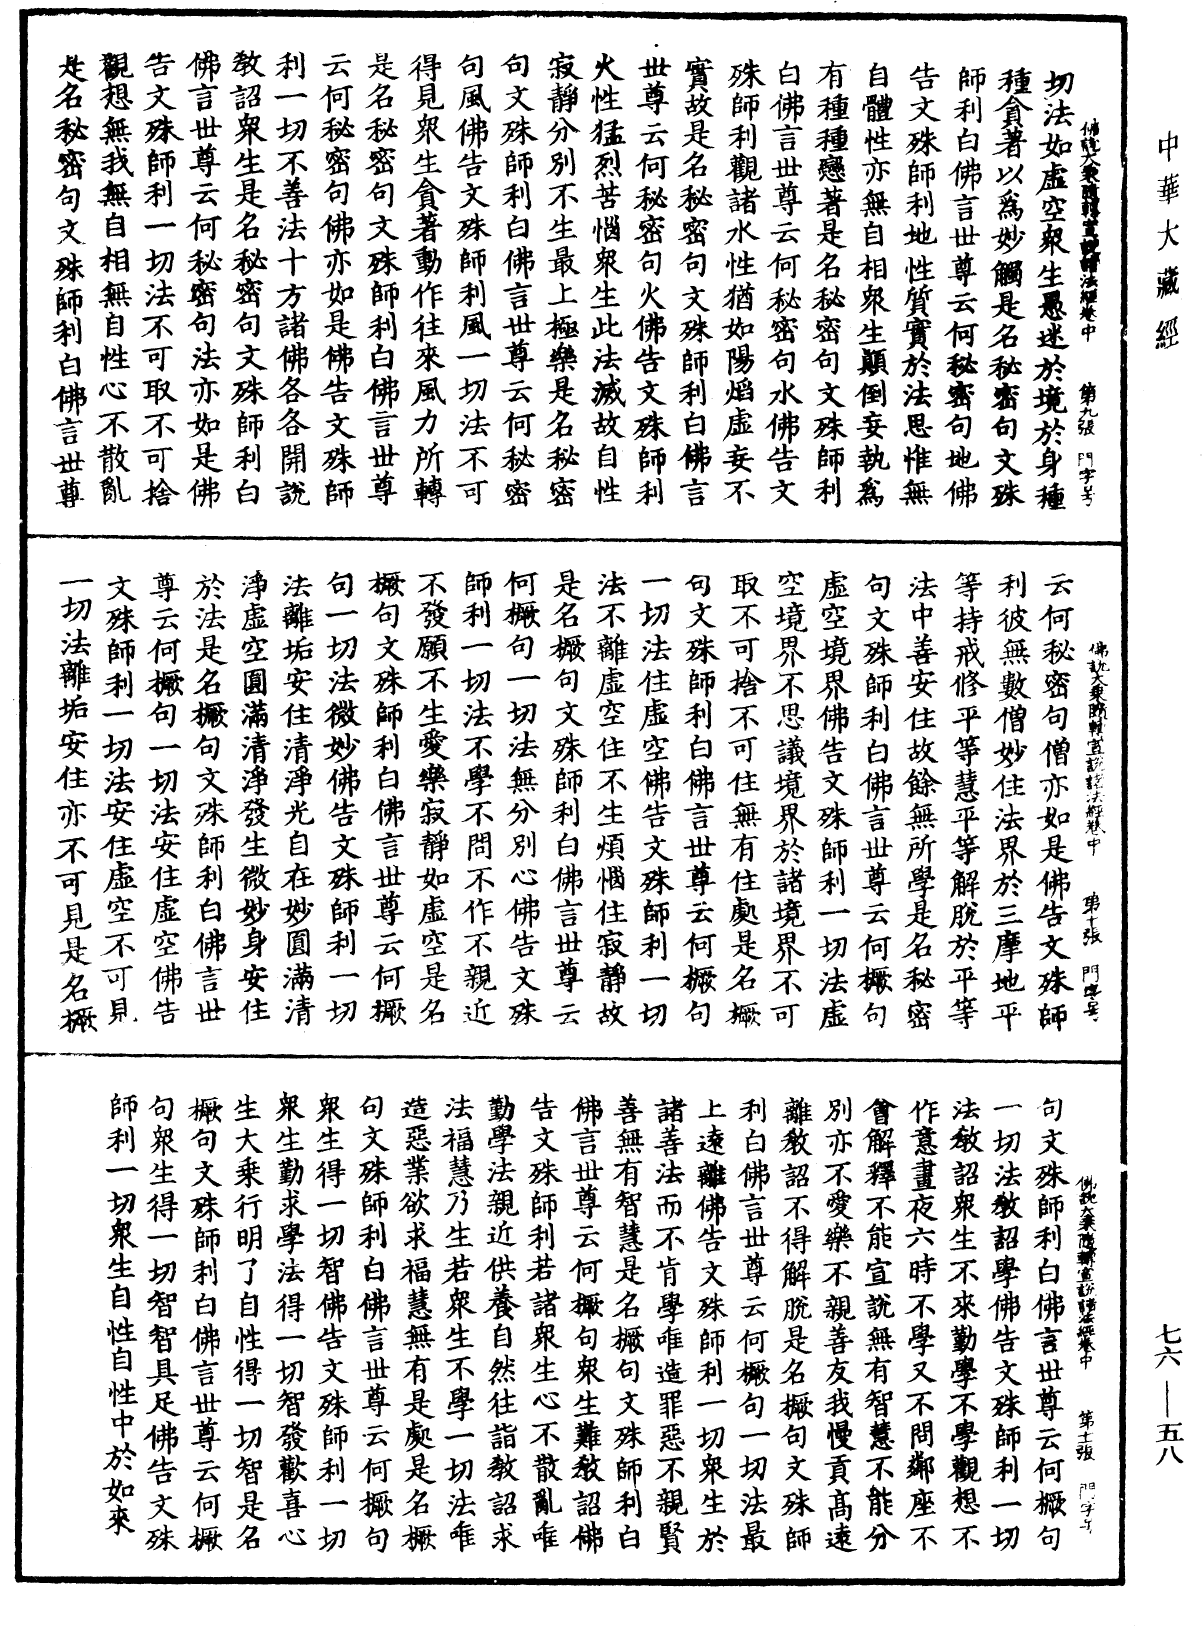 中華大藏經
七六—五八
佛說大乘隨轉宣說諸法經卷中 第九張 門字号
切法如虛空衆生愚迷於境於身種
種貪著以爲妙觸是名秘密句文殊
師利白佛言世尊云何秘密句地佛
告文殊師利地性質實於法思惟無
自體性亦無自相衆生顛倒妄執爲
有種種戀著是名秘密句文殊師利
白佛言世尊云何秘密句水佛告文
殊師利觀諸水性猶如陽焰虛妄不
實故是名秘密句文殊師利白佛言
世尊云何秘密句火佛告文殊師利
火性猛烈苦惱衆生此法滅故自性
寂靜分別不生最上極樂是名秘密
句文殊師利白佛言世尊云何秘密
句風佛告文殊師利風一切法不可
得見衆生貪著動作往來風力所轉
是名秘密句文殊師利白佛言世尊
云何秘密句佛亦如是佛告文殊師
利一切不善法十方諸佛各各開說
教詔衆生是名秘密句文殊師利白
佛言世尊云何秘密句法亦如是佛
告文殊師利一切法不可取不可捨
觀想無我無自相無自性心不散亂
是名秘密句文殊師利白佛言世尊
佛說大乘隨轉宣說諸法經卷中 第十張 門字号
云何秘密句僧亦如是佛告文殊師
利彼無數僧妙住法界於三摩地平
等持戒修平等慧平等解脫於平等
法中善安住故餘無所學是名秘密
句文殊師利白佛言世尊云何橛句
虛空境界佛告文殊師利一切法虛
空境界不思議境界於諸境界不可
取不可捨不可住無有住處是名橛
句文殊師利白佛言世尊云何橛句
一切法住虛空佛告文殊師利一切
法不離虛空住不生煩惱住寂靜故
是名橛句文殊師利白佛言世尊云
何橛句一切法無分別心佛告文殊
師利一切法不學不問不作不親近
不發願不生愛樂寂靜如虛空是名
橛句文殊師利白佛言世尊云何橛
句一切法微妙佛告文殊師利一切
法離垢安住清淨光自在妙圓滿清
淨虛空圓滿清淨發生微妙身安住
於法是名橛句文殊師利白佛言世
尊云何橛句一切法安住虛空佛告
文殊師利一切法安住虛空不可見
一切法離垢安住亦不可見是名橛
佛說大乘隨轉宣說諸法經卷中 第十一張 門字号
句文殊師利白佛言世尊云何橛句
一切法教詔學佛告文殊師利一切
法教詔衆生不來勤學不學觀想不
作意晝夜六時不學又不問鄰座不
會解釋不能宣說無有智慧不能分
別亦不愛樂不親善友我慢貢高遠
離教詔不得解脫是名橛句文殊師
利白佛言世尊云何橛句一切法最
上遠離佛告文殊師利一切衆生於
諸善法而不肯學唯造罪惡不親賢
善無有智慧是名橛句文殊師利白
佛言世尊云何橛句衆生難教詔佛
告文殊師利若諸衆生心不散亂唯
勤學法親近供養自然往詣教詔求
法福慧乃生若衆生不學一切法唯
造惡業欲求福慧無有是處是名橛
句文殊師利白佛言世尊云何橛句
衆生得一切智佛告文殊師利一切
衆生勤求學法得一切智發歡喜心
生大乘行明了自性得一切智是名
橛句文殊師利白佛言世尊云何橛
句衆生得一切智智具足佛告文殊
師利一切衆生自性自性中於如來